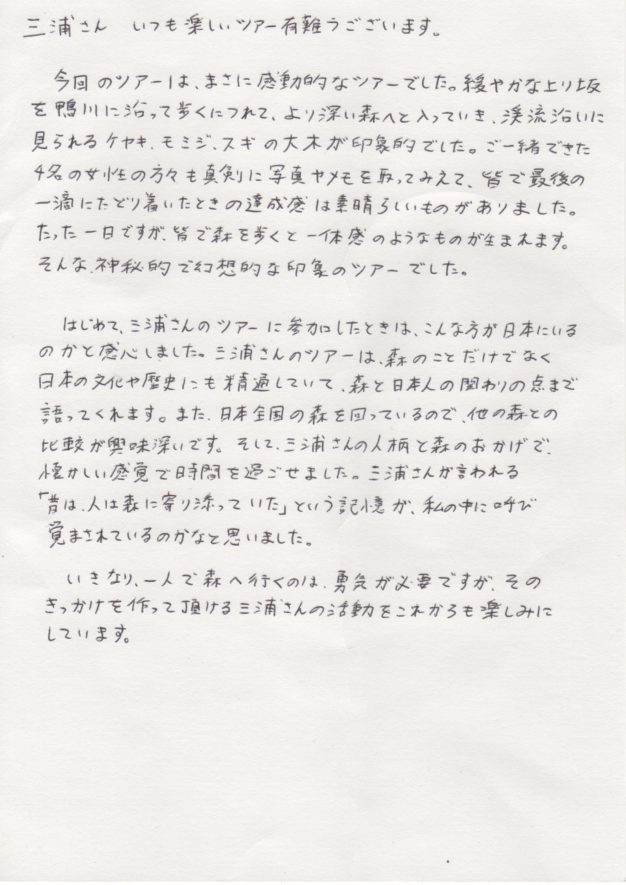 三浦さん　いつも楽しいツアー有難うございます。
今回のツアーは、まさに感動的なツアーでした。緩やかな上り坂
を鴨川に沿って歩くにつれて、より深い森へと入っていき、渓流沿いに
見られるケヤキ、モミジ、スギの大木が印象的でした。ご一緒できた
4名の女性の方々も真剣に写真やメモを取ってみえて、皆で最後の
一滴にたどり着いたときの達成感は素晴らしいものがありました。
たった一日ですが、皆で森を歩くと一体感のようなものが生まれます。
そんな、神秘的で幻想的な印象のツアーでした。
はじめて、三浦さんのツアーに参加したときは、こんな方が日本にいる
のかと感心しました。三浦さんのツアーは、森のことだけでなく
日本の文化や歴史にも精通していて、森と日本人の関わりの点まで
語ってくれます。また、日本全国の森を回っているので、他の森との
比較が興味深いです。そして、三浦さんの人柄と森のおかげで、
懐かしい感覚で時間を過ごせました。三浦さんが言われる
「昔は、人は森に寄り添っていた」という記憶が、私の中に呼び
覚まされているのかなと思いました。
いきなり、一人で森へ行くのは、勇気が必要ですが、その
きっかけを作って頂ける三浦さんの活動をこれからも楽しみに
しています。